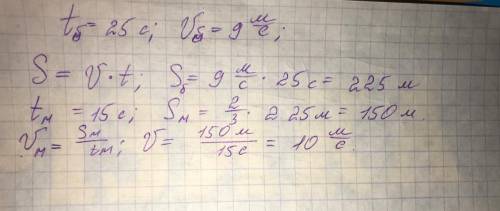 t_б = 25 с; V_б = 9 м/с;
S = V · t; S_б = 9 м/с · 25 с = 225 м
t_м = 15 с; S_м = 2/3 · 225 м = 150 м.
V_м = S_м/t_м; V = 150 м/15 с = 10 м/с.